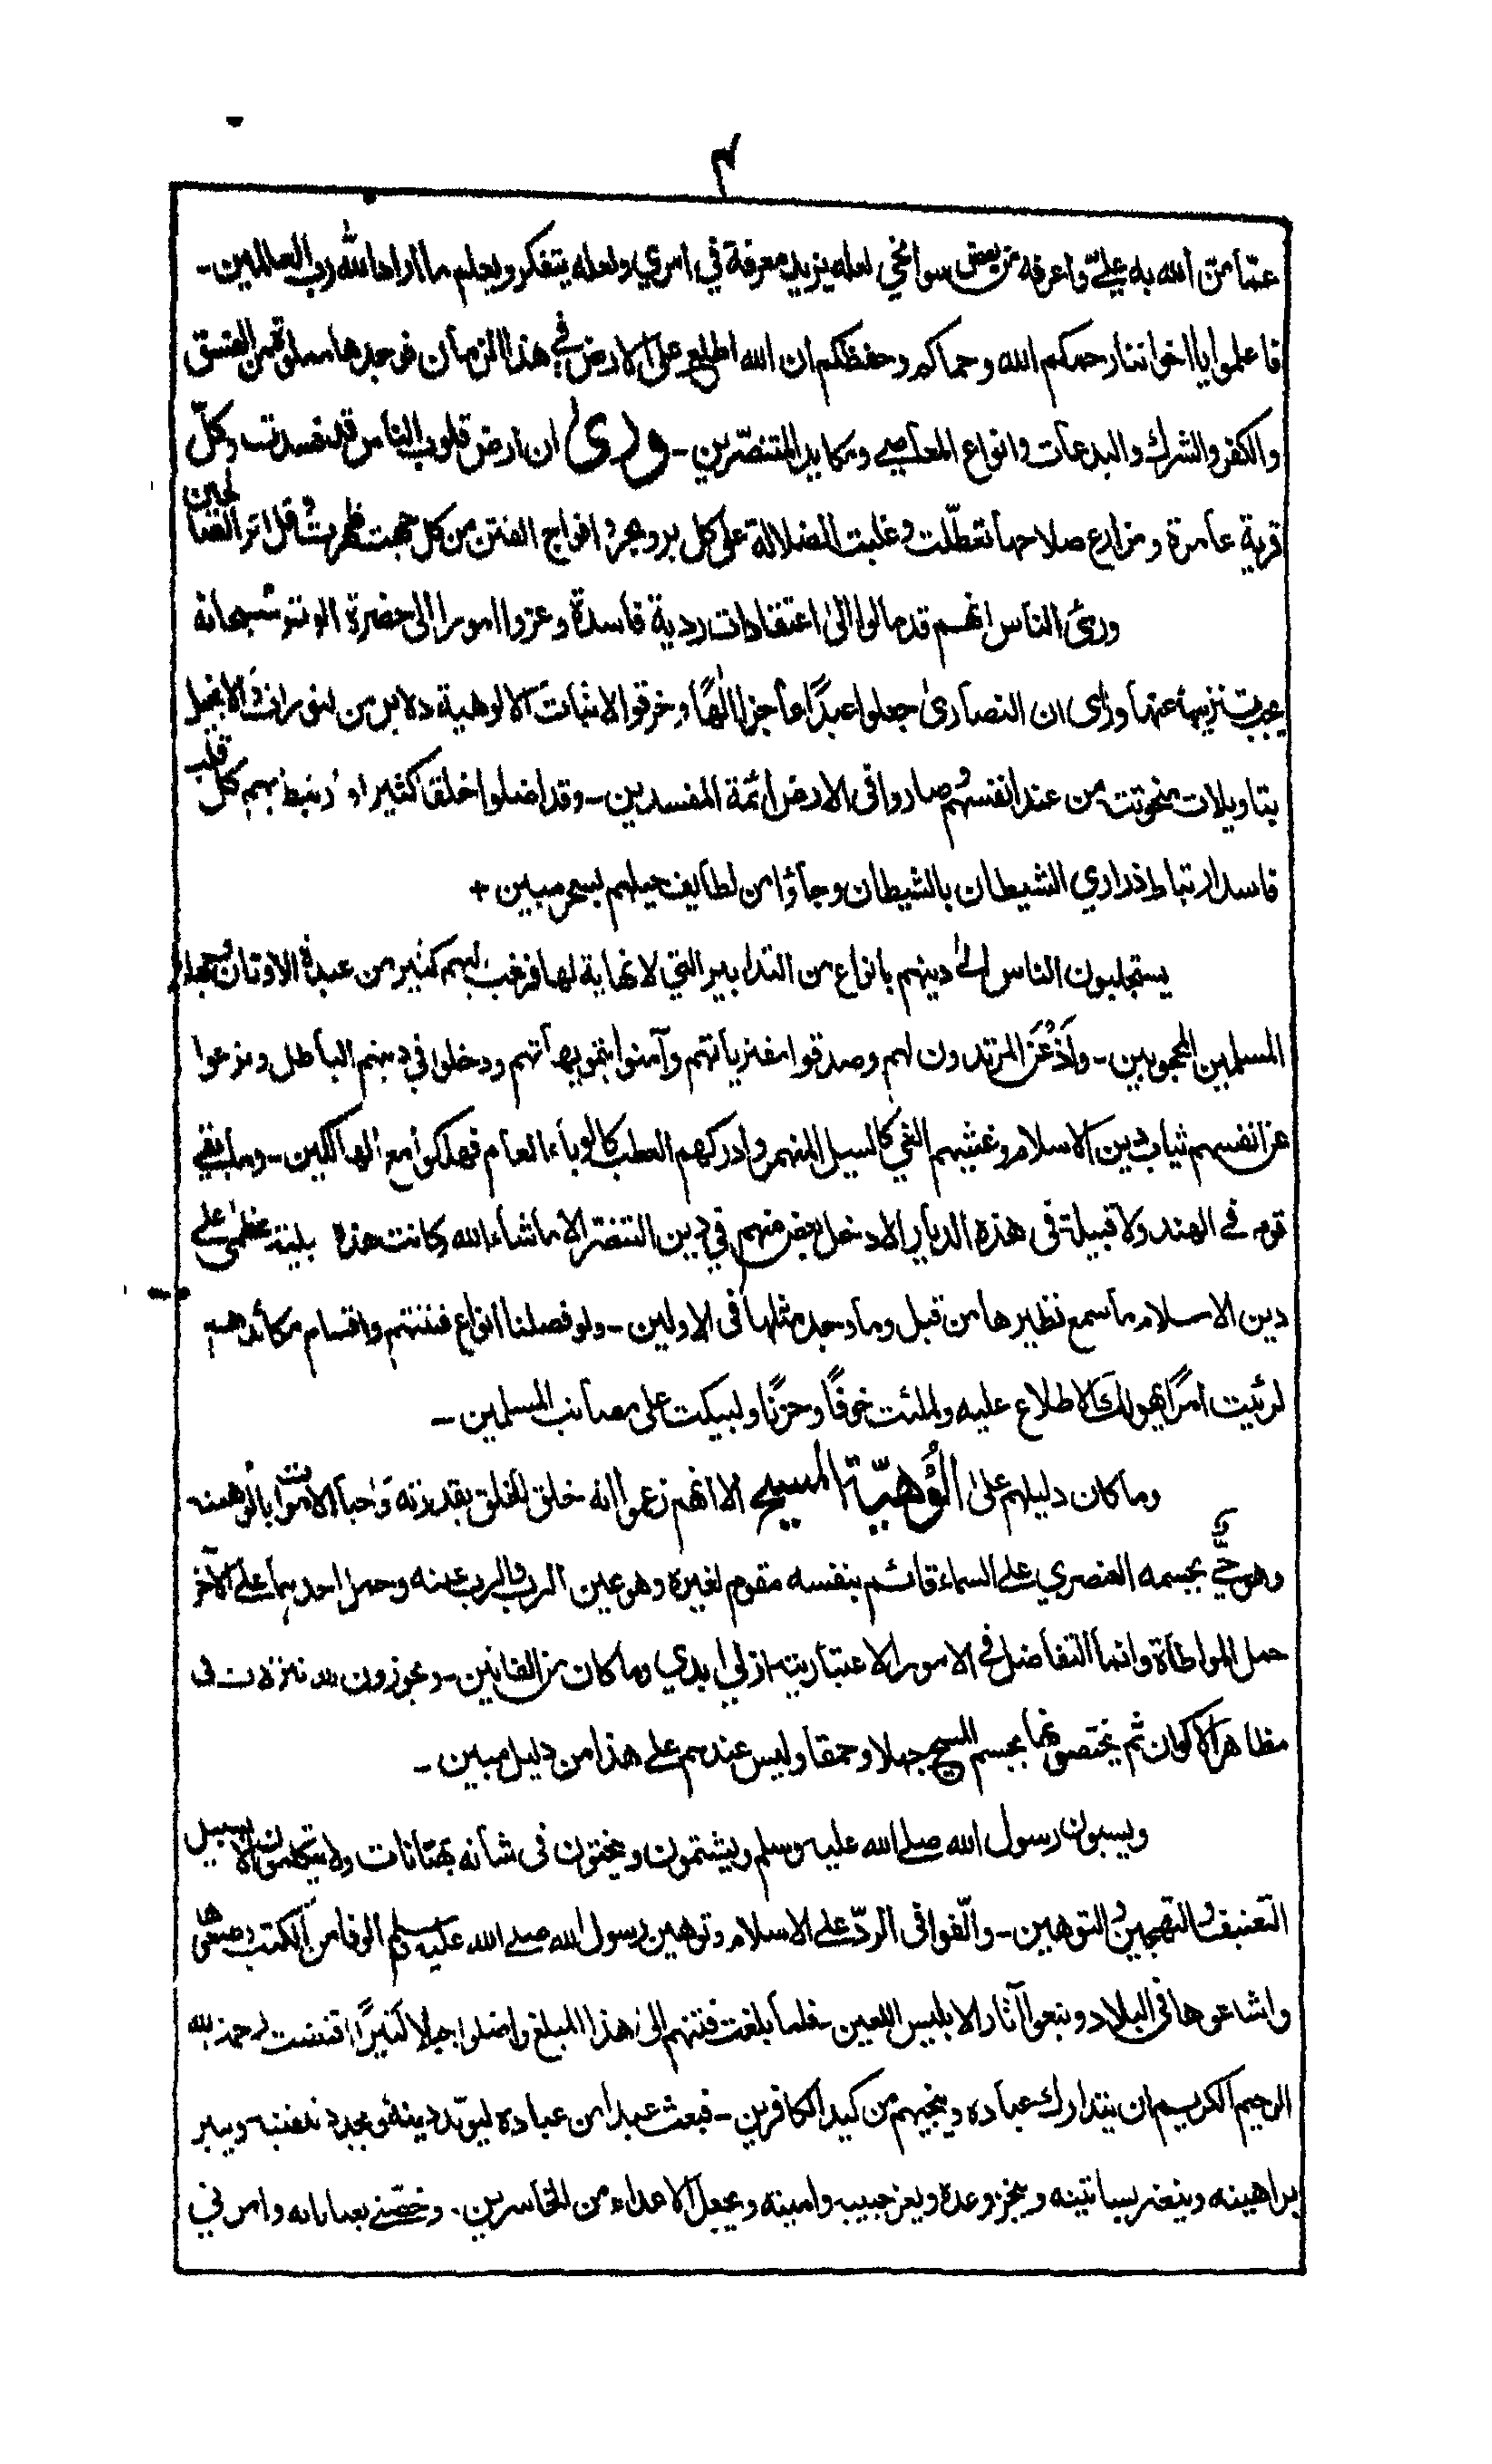 ۴
عمّا منّ الله به عليّ واعرفه من بعض سوانحي لعله يزيد معرفة في امري ولعله يتفكر ويعلم ما اراد الله رب العالمين -
فاعلموا يا اخواننا رحمكم الله وحماكم وحفظكم ان الله اطلع على الارض في هذا الزمان فوجدها مملوّة من الفسق
والكفر والشرك والبدعات وانواع المعاصي ومكايد المتنصّرين - ورئ ان ارض قلوب الناس قد فسدت وكلّ
قرية عامرة ومزارع صلاحها تعطّلت وغلبت الضلالة على كل بر وبحر وافواج الفتن من كل جهت ظهرت وقل اثر الصالحين
ورئ الناس انهم قد مالوا الى اعتقادات ردية فاسدة وعزوا امورا الى حضرة الوتر سبحانه
يجب تنزيهه عنها ورأى ان النصارى جعلوا عبدًا عاجزا الٰهًا وخرقوا لاثبات الالوهية دلايل من التوراة والانجيل
بتاويلات منحوتة من عند انفسهم وصاروا في الارض ائمة المفسدين - وقد اضلوا خلقا كثيرا وارتبط بهم كل قلب
فاسد ارتباط ذراري الشيطان بالشيطان وجاؤا من لطايف حيلهم بسحر مبين +
يستجلبون الناس الى دينهم بانواع من التدابير التي لا نهاية لها فرغب اليهم كثير من عبدة الاوثان وجهلاء
المسلمين المحجوبين - وأذعن المرتدون لهم وصدقوا مفترياتهم وآمنوا بتمويهاتهم ودخلوا في دينهم الباطل ونزعوا
عن انفسهم ثياب دين الاسلام وغشيهم الغي كالسيل المنهمر وادركهم العطب كالوباء العام فهلكوا مع الهالكين - وما بقي
قوم في الهند ولا قبيلة في هذه الديار الا دخل بعض منهم في دين التنصّر الا ما شاء الله وكانت هذه بلية عظمى على
دين الاسلام ما سمع نظيرها من قبل وما وجد مثلها في الاولين - ولو فصلنا انواع فتنتهم واقسام مكائدهم
لرئيت امرًا يهولك الاطلاع عليه ولملئت خوفًا وحزنًا ولبكيت على مصائب المسلمين -
وما كان دليلهم على الُوهيّة المسيح الا انهم زعموا انه خلق الخلق بقدرته واحيا الاموات بالوهيته
وهو حيّ بجسمه العنصري على السماء قائم بنفسه مقوم لغيره وهو عين الرب والرب عينه وحمل احدهما على الآخر
حمل المواطاة وانما التفاضل في الامور الاعتبارية ازلي ابدي وما كان من الفانين - ويجوزون له تنزلات في
مظاهر الاكوان ثم يختصونها بجسم المسيح جهلا وحمقا وليس عندهم على هذا من دليل مبين -
ويسبون رسول الله صلى الله عليه وسلم ويشتمون وينحتون في شانه بهتانات ولا يتكلمون الا بسبيل
التعنيف والتهجين والتوهين - والّفوا في الردّ على الاسلام وتوهين رسول الله صلى الله عليه وسلم الوفا من الكتب وطبعوها
واشاعوها في البلاد وتبعوا آثار الابليس اللعين - فلما بلغت فتنتهم الى هذا المبلغ واضلوا جبلا كثيرًا اقتضت رحمة الله
الرحيم الكريم ان يتدارك عباده وينجيهم من كيد الكافرين - فبعث عبدا من عباده ليؤيد دينه ويجدد تلقينه وينير
براهينه وينضر بساتينه وينجز وعده ويعز حبيبه وامينه ويجعل الاعداء من الخاسرين - وخصّني بعناياته وامرني